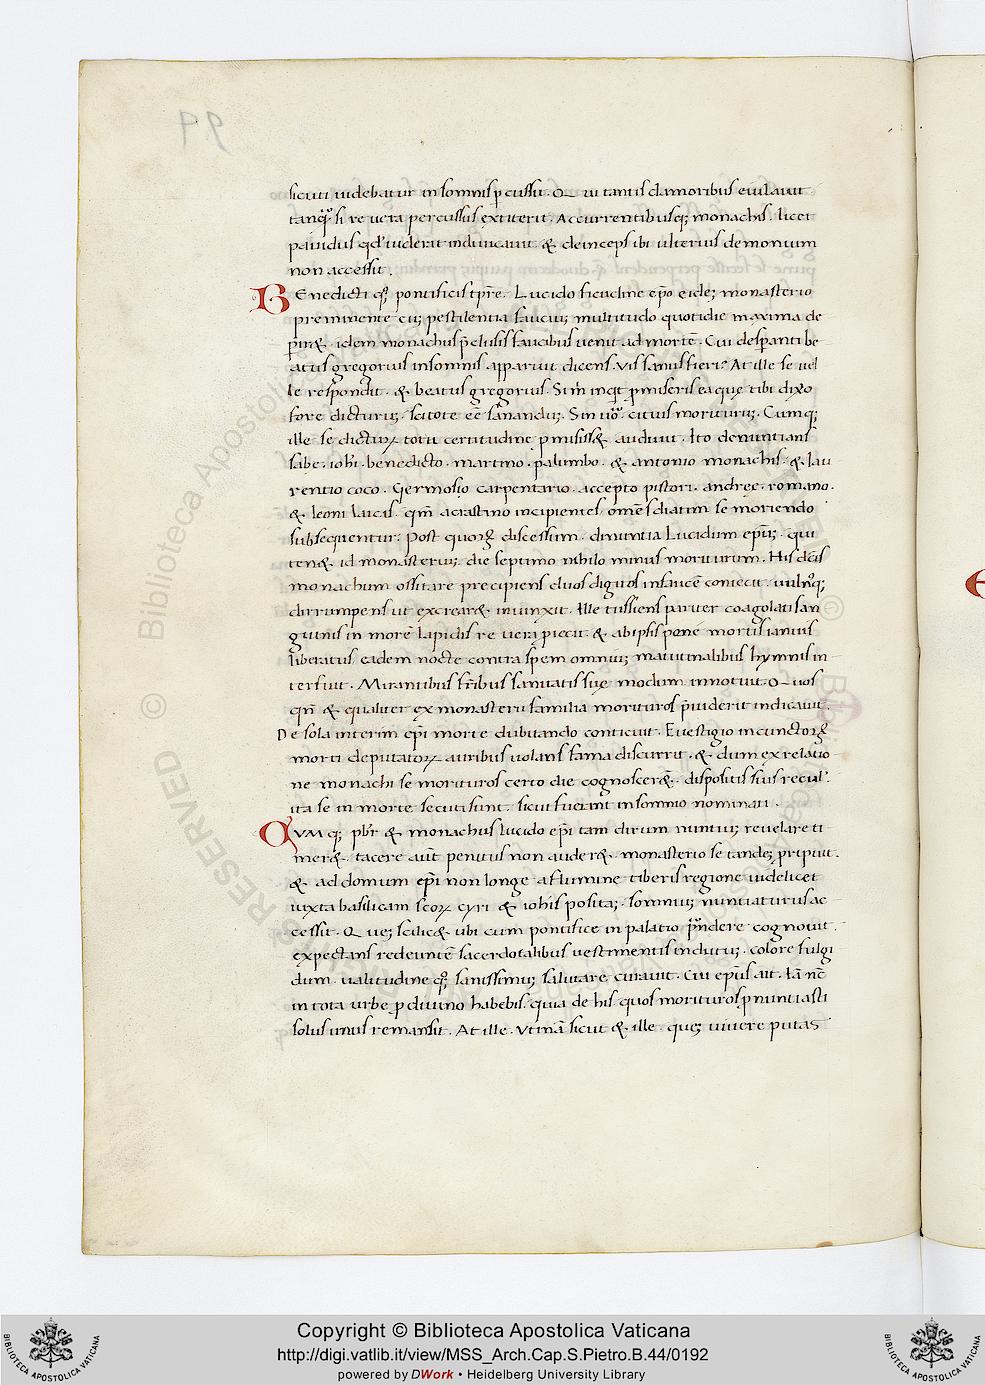 99
sicuti uidebatur in somnis ꝑcussit. Qui tantis clamoribus eiulauit
tanqͣꝫ si re uera percussus extiterit. Accurrentibusqꝫ monachis. licet
pauidus qd̓ uiderit indicauit & deinceps ibi ulterius demonium
non accessit.
Benedicti qꝫ pontificis tp̄re. Lucido ficudine ep̄o eidē monasterio
preminente cū pestilentia faucium multitudo quotidie maxima de
ꝑiret. idem monachus p̄clusis faucibus uenit ad mortē. Cui desperanti be
atus gregorius in somnis apparuit dicens. Vis sanus fieri? At ille se uel
le respondit. & beatus gregorius. Si m̄ inquit ꝓmiseris ea quę tibi dixo
fore dicturū. scito te eē sanandū. Sin uō. cítius moriturū. Cumqꝫ
ille se dicturū tota certitudine ꝓmisisset audiuit. Ito denuntians
sabę. ioh̄i. benedicto. martino. palumbo. & antonio monachis. & lau
rentio coco. Germosio carpentario. accepto pistori. andreę. romano.
& leoni laicis. qm̄ a crastino incipientes omēs diatim se moriendo
subsequentur. Post quorū discessum. dinuntia Lucidum ep̄m qui
tenet id monasteriū die septimo nihilo minus moriturum. His dictis
monachum oscitare precipiens duos digitos in fauce coniecit. uulnꝰqꝫ
dirrumpens ut excrearet iniunxit. Ille tussiens uiriter coagolati san
guinis in morē lapidis re uera ꝓiecit. & ab ipsis penē mortis ianuis
liberatus eadem nocte contra spem omniū matutinalibus hymnis in
terfuit. Mirantibus fr̄ibus sanitatis suę modum innotuit. Quos
qn̄ & qualiter ex monasterii familia morituros p̄uiderit indicauit.
De sola interim ep̄i morte dubitando conticuit. E uestigio in cunctorū
morti deputatorū auribus uolans fama discurrit. & dum ex relatio
ne monachi se morituros certo die cognoscerēt dispositis suis rebus
ita se in morte secuti sunt. sicut fuerant in somnio nominati.
Qvmqꝫ pb̄r & monachus lucido ep̄i tam dirum nuntiū reuelare ti
meret. tacere aūt penitus non auderet. monasterio se tandē ꝓripuit.
& ad domum ep̄i non longe a flumine tiberis regione uidelicet
iuxta basilicam scorū cyri & ioh̄is positā. somniū nuntiaturus ac
cessit. Quē scilicet ubi cum pontifice in palatio prandere cognouit.
expectans redeuntē sacerdotalibus uestimentis indutū. colore fulgi
dum. ualitudine qꝫ sanissimū salutare curauit. Cui ep̄us ait. Iā nūc
in tota urbe ꝑ diuino habebis. quia de his quos morituros ꝓnuntiasti
solus unus remansit. At ille. Vtinā sicut & ille. quē uiuere putas
© Biblioteca Apostolica Vaticana
ALL RIGHTS RESERVED
Copyright © Biblioteca Apostolica Vaticana
http://digi.vatlib.it/view/MSS_Arch.Cap.S.Pietro.B.44/0192
powered by DWork • Heidelberg University Library
BIBLIOTECA APOSTOLICA VATICANA
BIBLIOTECA APOSTOLICA VATICANA